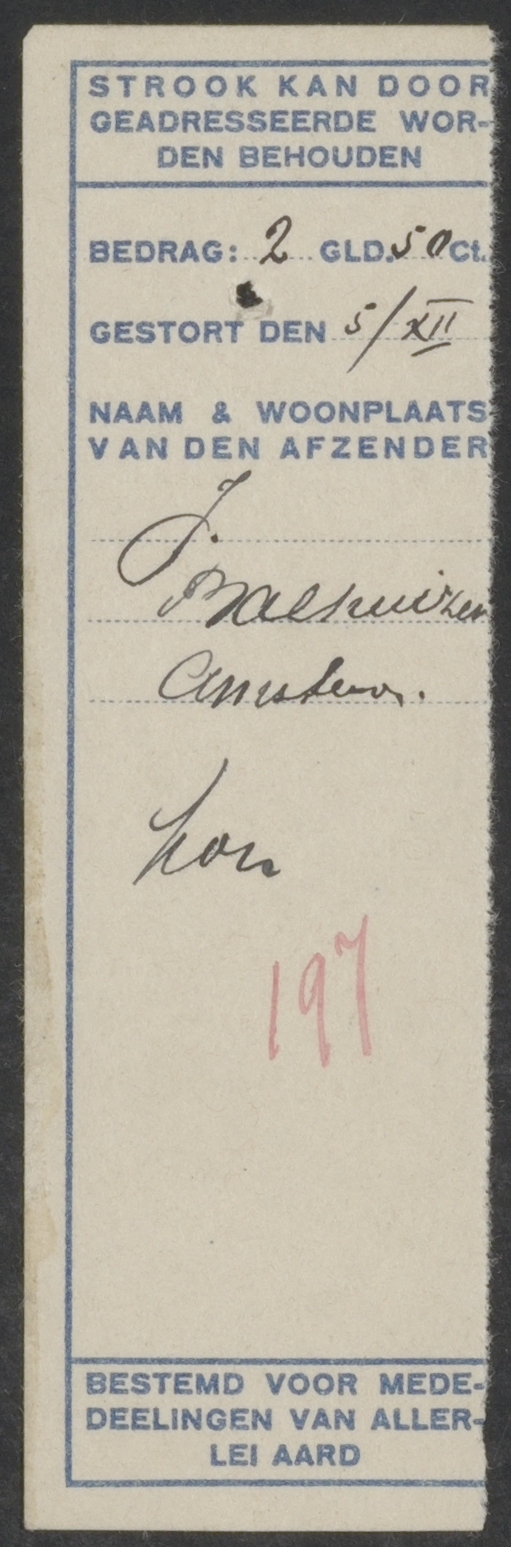 STROOK KAN DOOR
GEADRESSEERDE WOR-
DEN BEHOUDEN
BEDRAG: 2 GLD. 50 Ct.
GESTORT DEN 5/XII
NAAM & WOONPLAATS
VAN DEN AFZENDER
J.
Balhuizen
Amsterd.
hon
197
BESTEMD VOOR MEDE-
DEELINGEN VAN ALLER-
LEI AARD